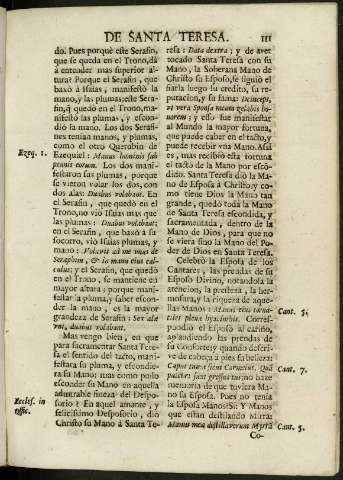 DE SANTA TERESA. 111
do. Pues porquè este Serafin,
que se queda en el Trono, dà
à entender mas superior al-
tura? Porque el Serafin, que
baxò à Isaias, manifestò la
mano, y las plumas: este Sera-
fin, q̃ quedò en el Trono, ma-
nifestò las plumas, y escon-
diò la mano. Los dos Serafi-
nes tenian manos, y plumas,
como el otro Querubin de
Ezequiel: Manus hominis sub
pennis eorum. Los dos mani-
festaron sus plumas, porque
se vieron volar los dos, con
dos alas: Duabus volabant. En
el Serafin, que quedò en el
Trono, no viò Isaias mas que
las plumas: Duabus volabant;
en el Serafin, que baxò à su
socorro, viò Isaias plumas, y
mano: Volavit ad me unus de
Seraphim, & in manu eius cal-
culus; y el Serafin, que quedò
en el Trono, se mantiene en
mayor altura: porque mani-
festar la pluma, y saber escon-
der la mano, es la mayor
grandeza de Serafin:
duabus volabant.
Mas vengo bien, en que
para sacramentar Santa Tere-
sa el sentido del tacto, mani-
festara su pluma, y escondie-
ra su Mano; mas como pudo
esconder su Mano en aquella
admirable fineza del Despo-
sorio? En aquel amante, y
felicissimo Desposorio, diò
Christo su Mano à Santa Te-
Ezeq. 1.
Eccles. in
offic.
resa: Data dextra; y de aver
tocado Santa Teresa con su
la Soberana Mano de
Christo su Esposo, se siguiò el
fiarla luego su credito, su re-
putacion, y su fama: Deinceps,
ut vera Sponsa meum zelabis ho-
norem; y esso fue manifestar
al Mundo la mayor fortuna,
que puede caber en el tacto, y
puede recebir vna Mano. Assi
es, mas recibiò esta fortuna
el tacto de la Mano por esco-
dido. Santa Teresa diò la Ma-
no de Esposa à Christo; y co-
mo tiene Dios la Mano tan
grande, quedò toda la Mano
de Santa Teresa escondida, y
sacramentada, dentro de la
Mano de Dios, para que no
se viera sino la Mano del Po-
der de Dios en Santa Teresa.
Celebrò la Esposa de los
Cantares, las prendas de su
Esposo Divino, notandola la
atencion, la grandeza, la her-
mosura, y la riqueza de aque-
llas Manos: Manus eius torna-
tiles plenæ hyacinthis. Corres-
pondiò el Esposo al cariño,
aplaudiendo las prendas de
su Consorte; y quando descri-
ve de cabeça à pies sa belleza:
Caput tuum sicut Carmelus. Quã
pulchri sunt gressus tui; no haze
memoria de que tuviera Ma-
no la Esposa. Pues no tenia
la Esposa Manos? Si: Y Manos
que estàn distilando Mirra:
Manus meæ distillaverunt Myrrã
Cant. 5.
Cant. 7.
Cant. 5.
Co-